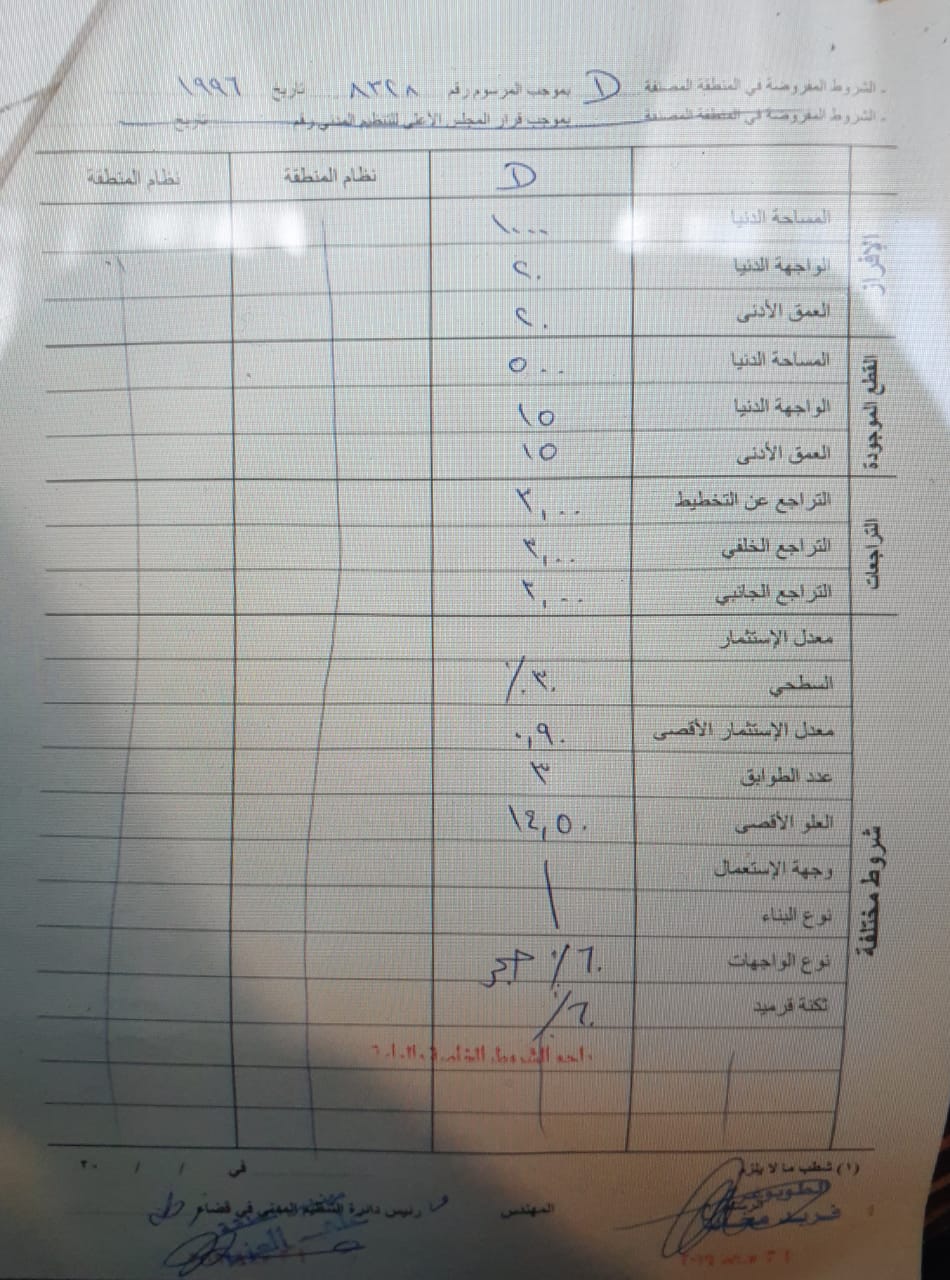 - الشروط المفروضة في المنطقة المصنفة D بموجب المرسوم رقم ٨٣٢٨ تاريخ ١٩٩٦
- الشروط المفروضة في المنطقة المصنفة بموجب قرار المجلس الأعلى للتنظيم المدني رقم تاريخ
D نظام المنطقة نظام المنطقة
الإفراز
المساحة الدنيا ١٠٠٠
الواجهة الدنيا ٢٠
العمق الأدنى ٢٠
القطع الموجودة
المساحة الدنيا ٥٠٠
الواجهة الدنيا ١٥
العمق الأدنى ١٥
التراجعات
التراجع عن التخطيط ٣,٠٠
التراجع الخلفي ٣,٠٠
التراجع الجانبي ٣,٠٠
شروط مختلفة
معدل الإستثمار
السطحي ٣٠٪
معدل الإستثمار الأقصى ٠,٩٠
عدد الطوابق ٣
العلو الأقصى ١٤,٥٠
وجهة الإستعمال
نوع البناء
نوع الواجهات ٦٠٪ حجر
تكنة قرميد ٦٠٪
راجع الشروط الخاصة
(١) شطب ما لا يلزم في / / ٢٠
المهندس رئيس دائرة التنظيم المدني في قضاء
الطوبوغرافي
فريد